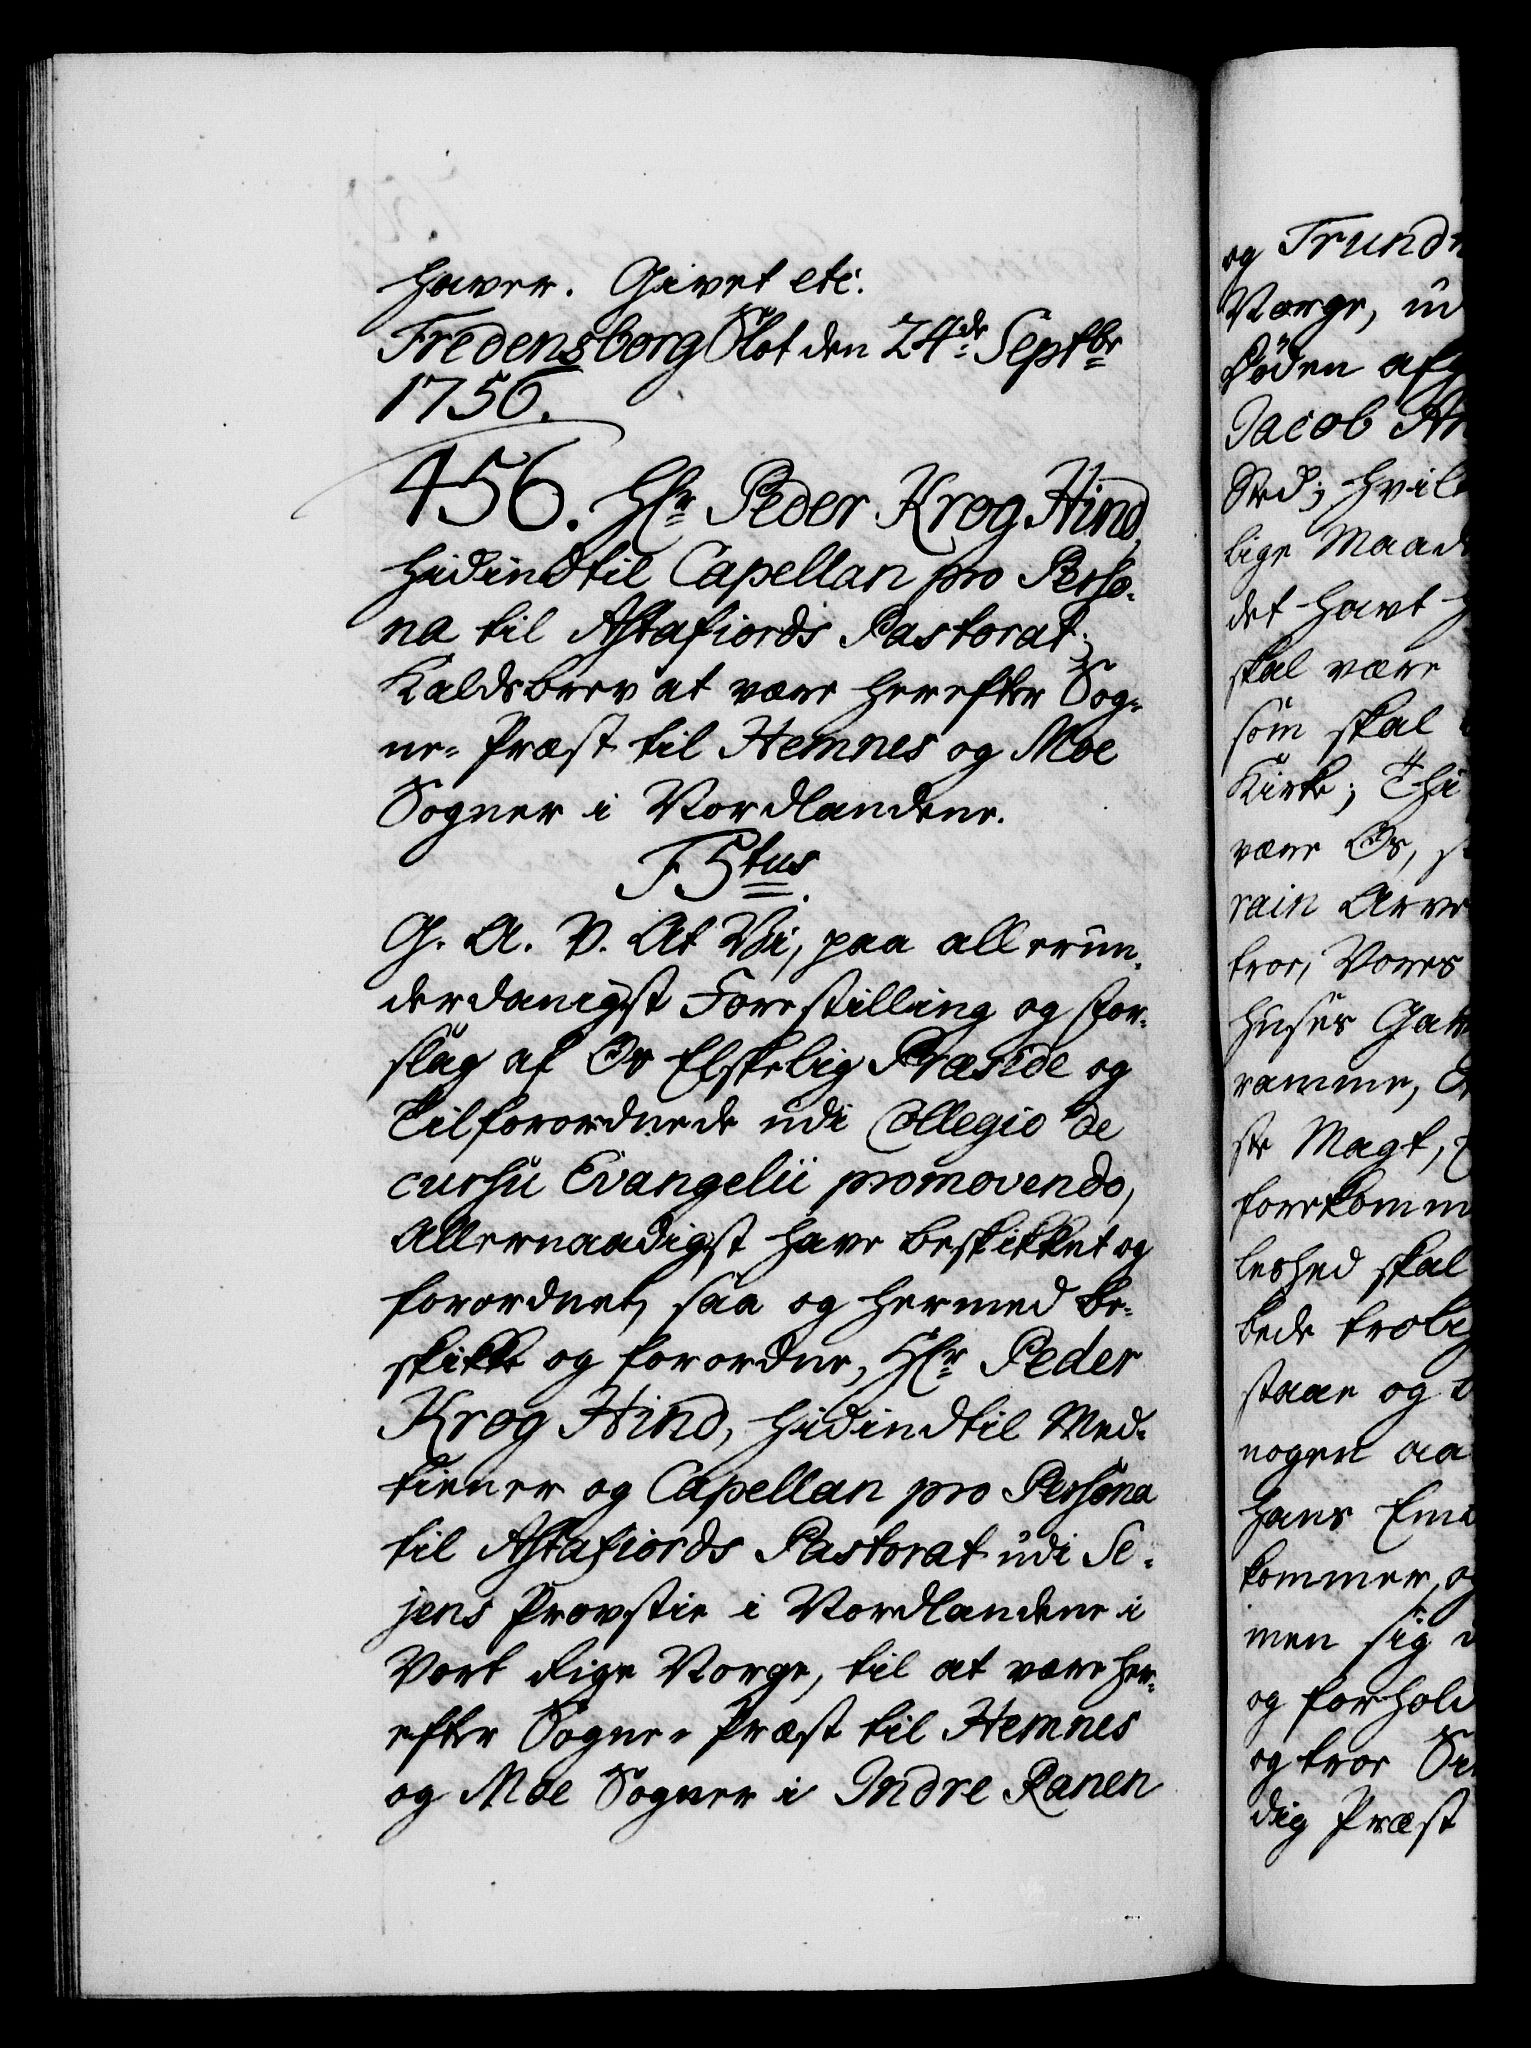 haver. Givet etc.
Fredensborg Slot den 24de Septbr
1756.
456. Hr Peder Krog Hind,
hidindtil Capellan pro Perso-
na til Astafiords Pastorat;
Kaldsbrev at være herefter Sog-
ne-Præst til Hemnes og Moe
Sogner i Nordlandene.
F5tus.
G. A. V. At Vi, paa allerun-
derdanigst Forestilling og For-
slag af Os Elskelig Præside og
Tilforordnede udi Collegio de
cursu Evangelii promovendo,
Allernaadigst have beskikket og
forordnet, saa og hermed be-
skikke og forordne, Hr Peder
Krog Hind, hidindtil Med-
tiener og Capellan pro Persona
til Astafiords Pastorat udi Se-
jens Provstie i Nordlandene i
Vort Rige Norge, til at være her-
efter Sogne-Præst til Hemnes
og Moe Sogner i Indre Ranen
og Trund
Norge, ud
Døden afg
Jacob An
Sted; hvil
lige Maad
det havt h
skal være
som skal
Kirke; Thi
være Os, s
rain Arve
troe, Vores
Huses Gav
ramme, O
ste Magt,
forekomm
leshed skal
bede trolig
staae og b
nogen aa
hans Em
kommer, og
men sig u
og forhold
og troe S
dig Præst